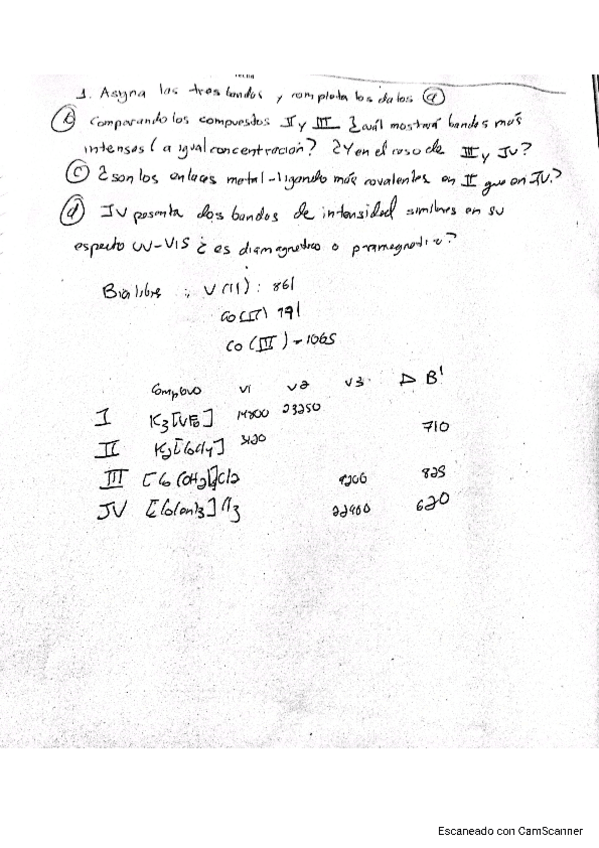 1. Asigna las tres bandas y completa los datos (a)
(b) Comparando los compuestos II y III ¿cuál mostrará bandas más
intensas (a igual concentración? ¿Y en el caso de III y IV?
(c) ¿son los enlaces metal-ligando más covalentes en II que en IV.?
(d) IV presenta dos bandas de intensidad similares en su
espectro UV-VIS ¿es diamagnetico o paramagnetico?
V(II) : 861
Co(II) 791
Co(III) = 1065
Complejo V1 V2 V3. Δ B'
I K3[VF6] 14800 23250
710
II K2[CoCl4] 3120
III [Co(OH2)6]Cl2 9200 825
IV [Co(en)3]Cl3 22400 620
Escaneado con CamScanner